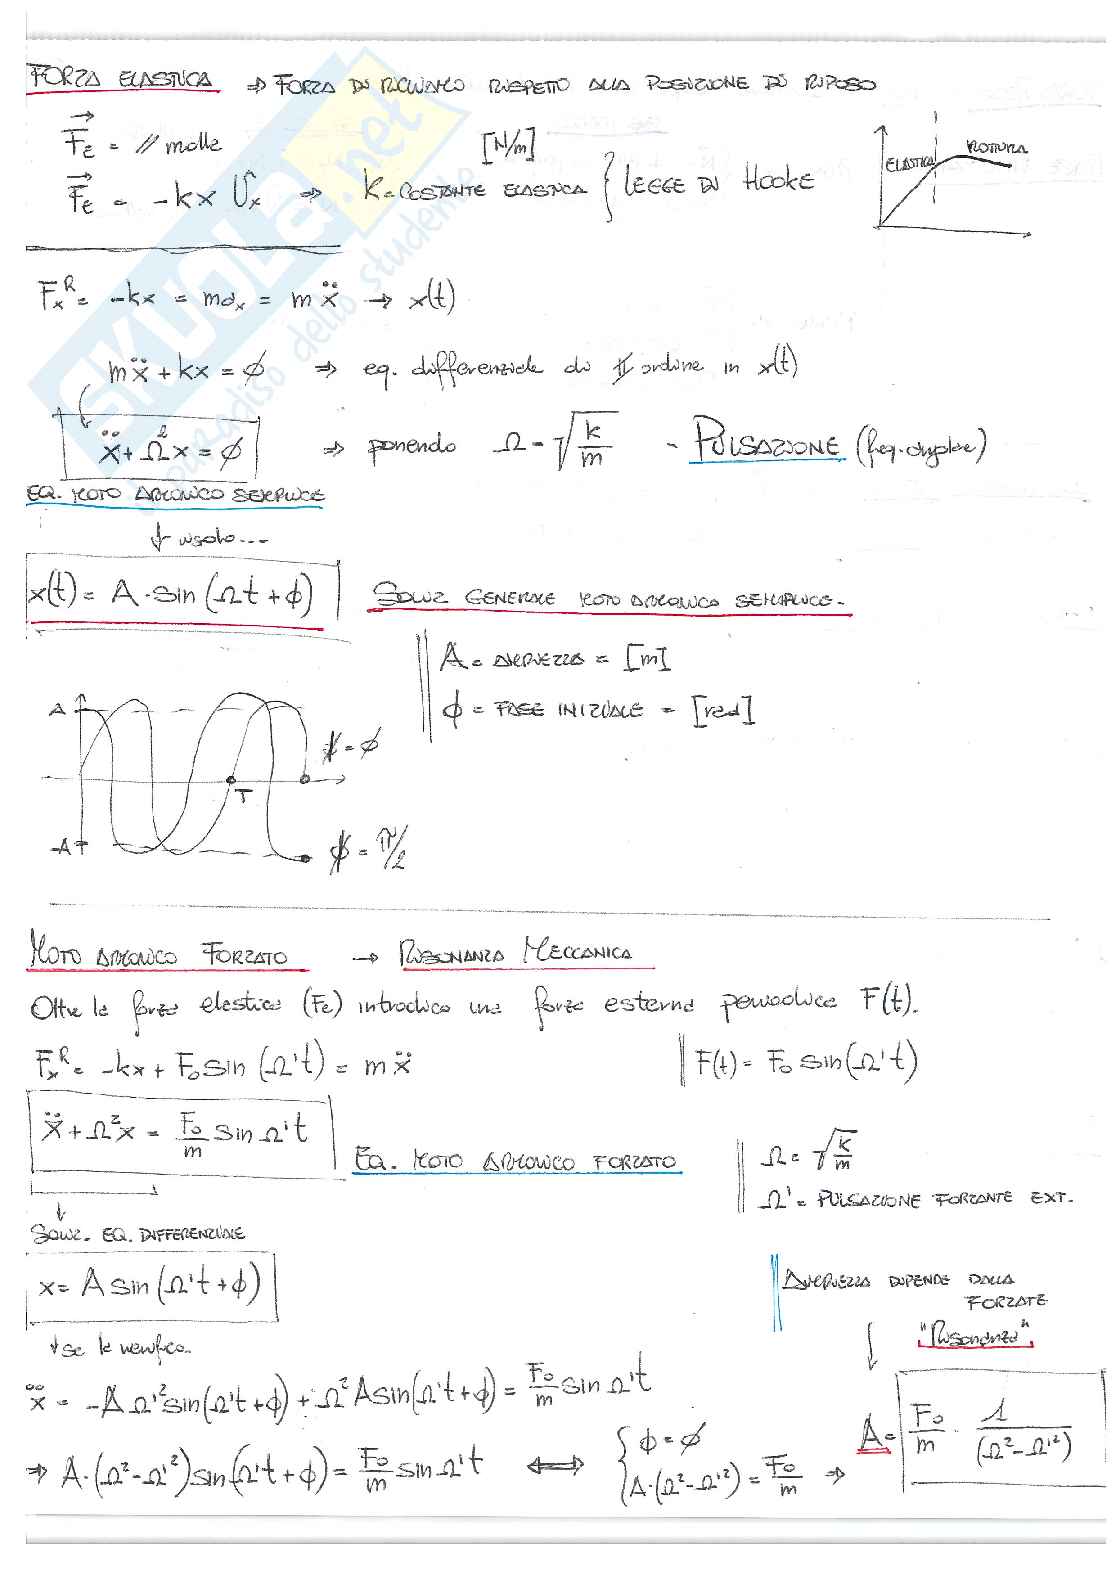 FORZA ELASTICA ⇒ FORZA DI RICHIAMO RISPETTO ALLA POSIZIONE DI RIPOSO
F⃗E = // molle
[N/m]
F⃗E = -kx Ûx ⇒ K = COSTANTE ELASTICA } LEGGE DI HOOKE
ELASTICA ROTTURA
FxR = -kx = max = mẍ → x(t)
mẍ + kx = ϕ ⇒ eq. differenziale di II ordine in x(t)
ẍ + Ω²x = ϕ ⇒ ponendo Ω = √k/m - PULSAZIONE (freq. angolare)
EQ. MOTO ARMONICO SEMPLICE
↓ risolto...
x(t) = A·sin(Ωt + ϕ) SOLUZ GENERALE MOTO ARMONICO SEMPLICE.
A = AMPIEZZA = [m]
ϕ = FASE INIZIALE = [rad]
A
ϕ = ϕ
T
-A
ϕ = π/2
MOTO ARMONICO FORZATO → RISONANZA MECCANICA
Oltre la forza elastica (Fe) introduco una forza esterna periodica F(t).
FxR = -kx + F₀ sin(Ω't) = mẍ
F(t) = F₀ sin(Ω't)
ẍ + Ω²x = F₀/m sin Ω't
EQ. MOTO ARMONICO FORZATO
Ω = √k/m
Ω' = PULSAZIONE FORZANTE EXT.
↓
SOLUZ. EQ. DIFFERENZIALE
x = A sin(Ω't + ϕ)
AMPIEZZA DIPENDE DALLA FORZATE
"Risonanza"
↓ se la verifico..
ẍ = -AΩ'² sin(Ω't + ϕ) + Ω² A sin(Ω't + ϕ) = F₀/m sin Ω't
⇒ A·(Ω² - Ω'²) sin(Ω't + ϕ) = F₀/m sin Ω't ⟺ { ϕ = ϕ
A·(Ω² - Ω'²) = F₀/m ⇒ A = F₀/m · 1/(Ω² - Ω'²)
SKUOLA.net
paradiso dello studente